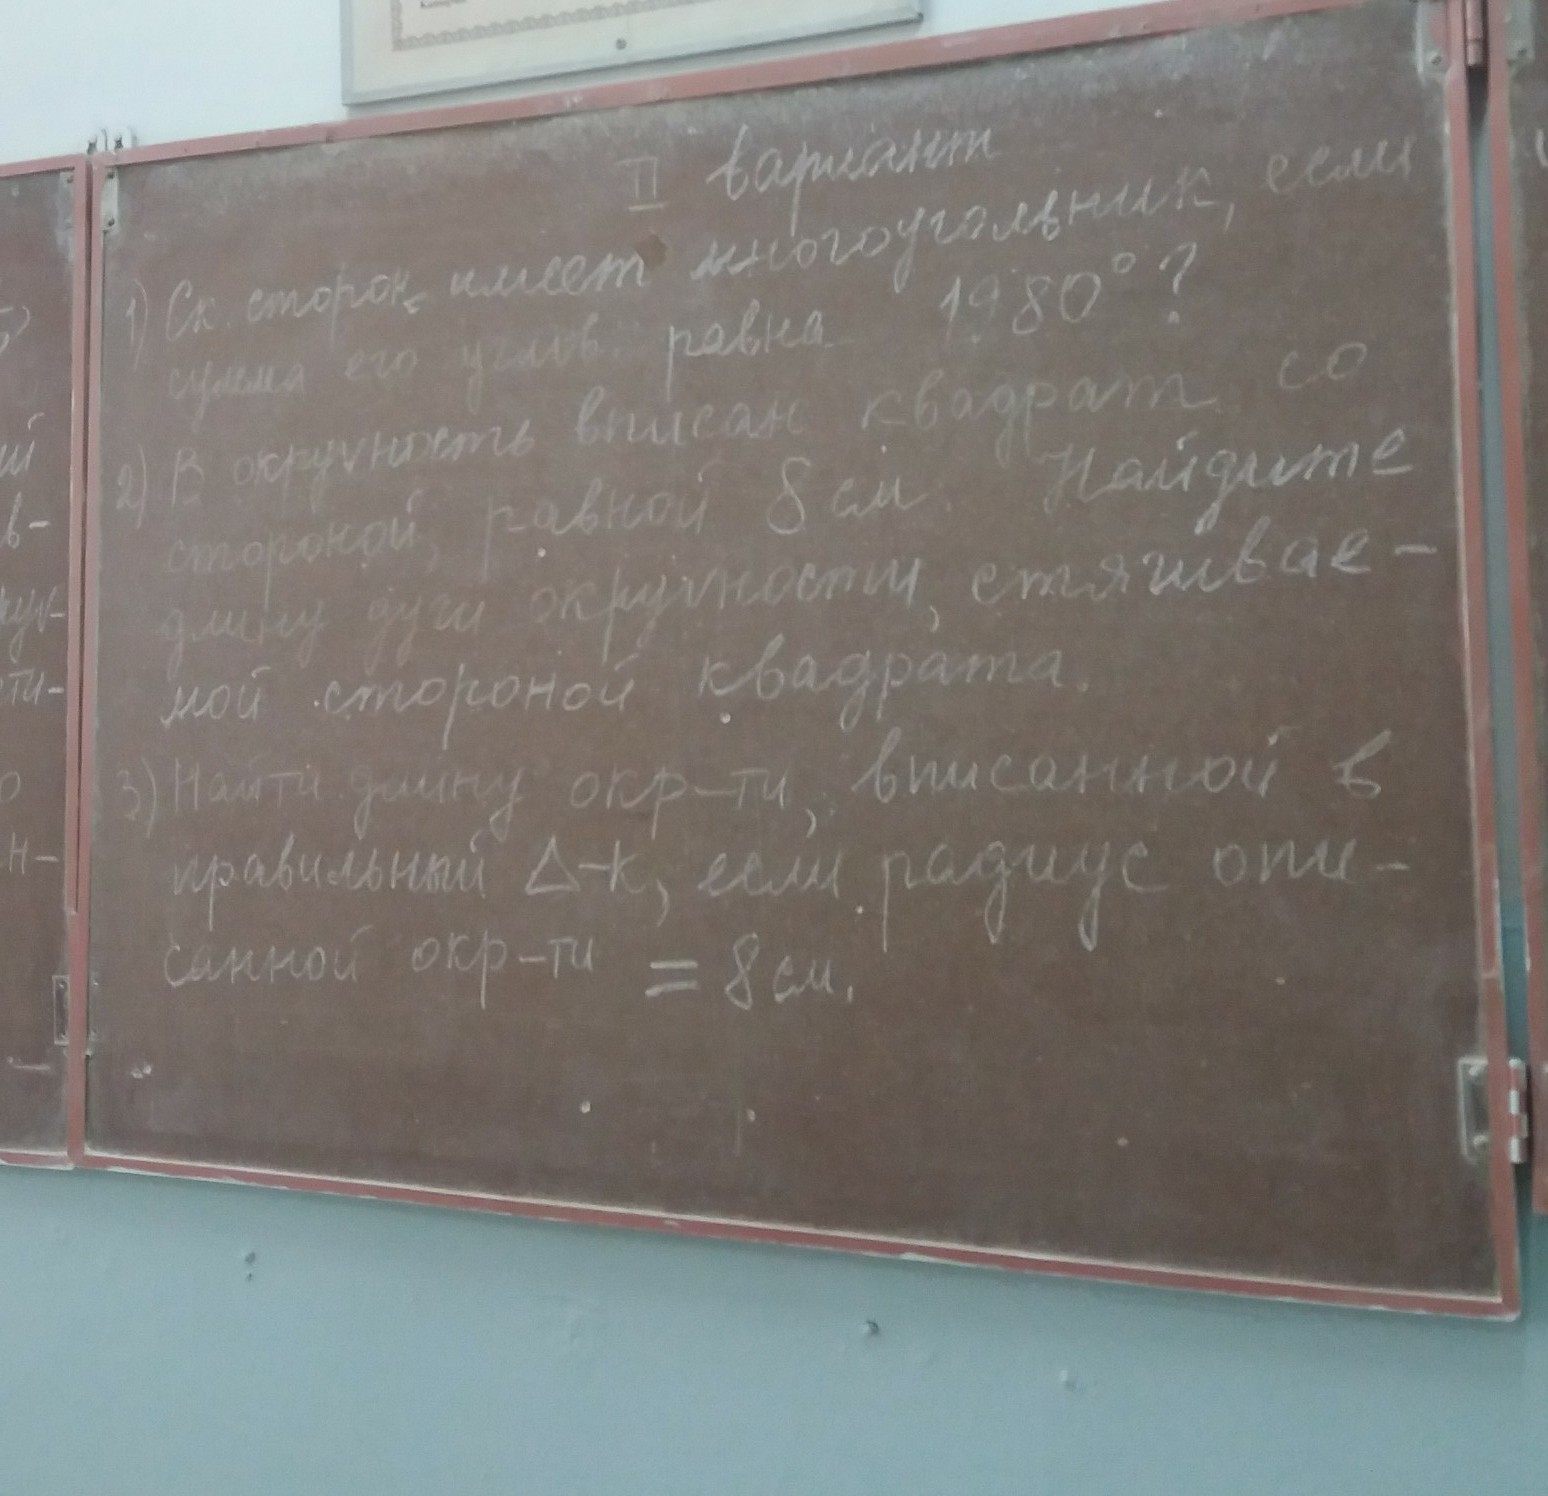 II вариант
1) Ск. сторон имеет многоугольник, если
сумма его углов равна 1980°?
2) В окружность вписан квадрат со
стороной, равной 8 см. Найдите
длину дуги окружности, стягивае-
мой стороной квадрата.
3) Найти длину окр-ти, вписанной в
правильный Δ-к, если радиус опи-
санной окр-ти = 8 см.
ий
в-
ти-
н-